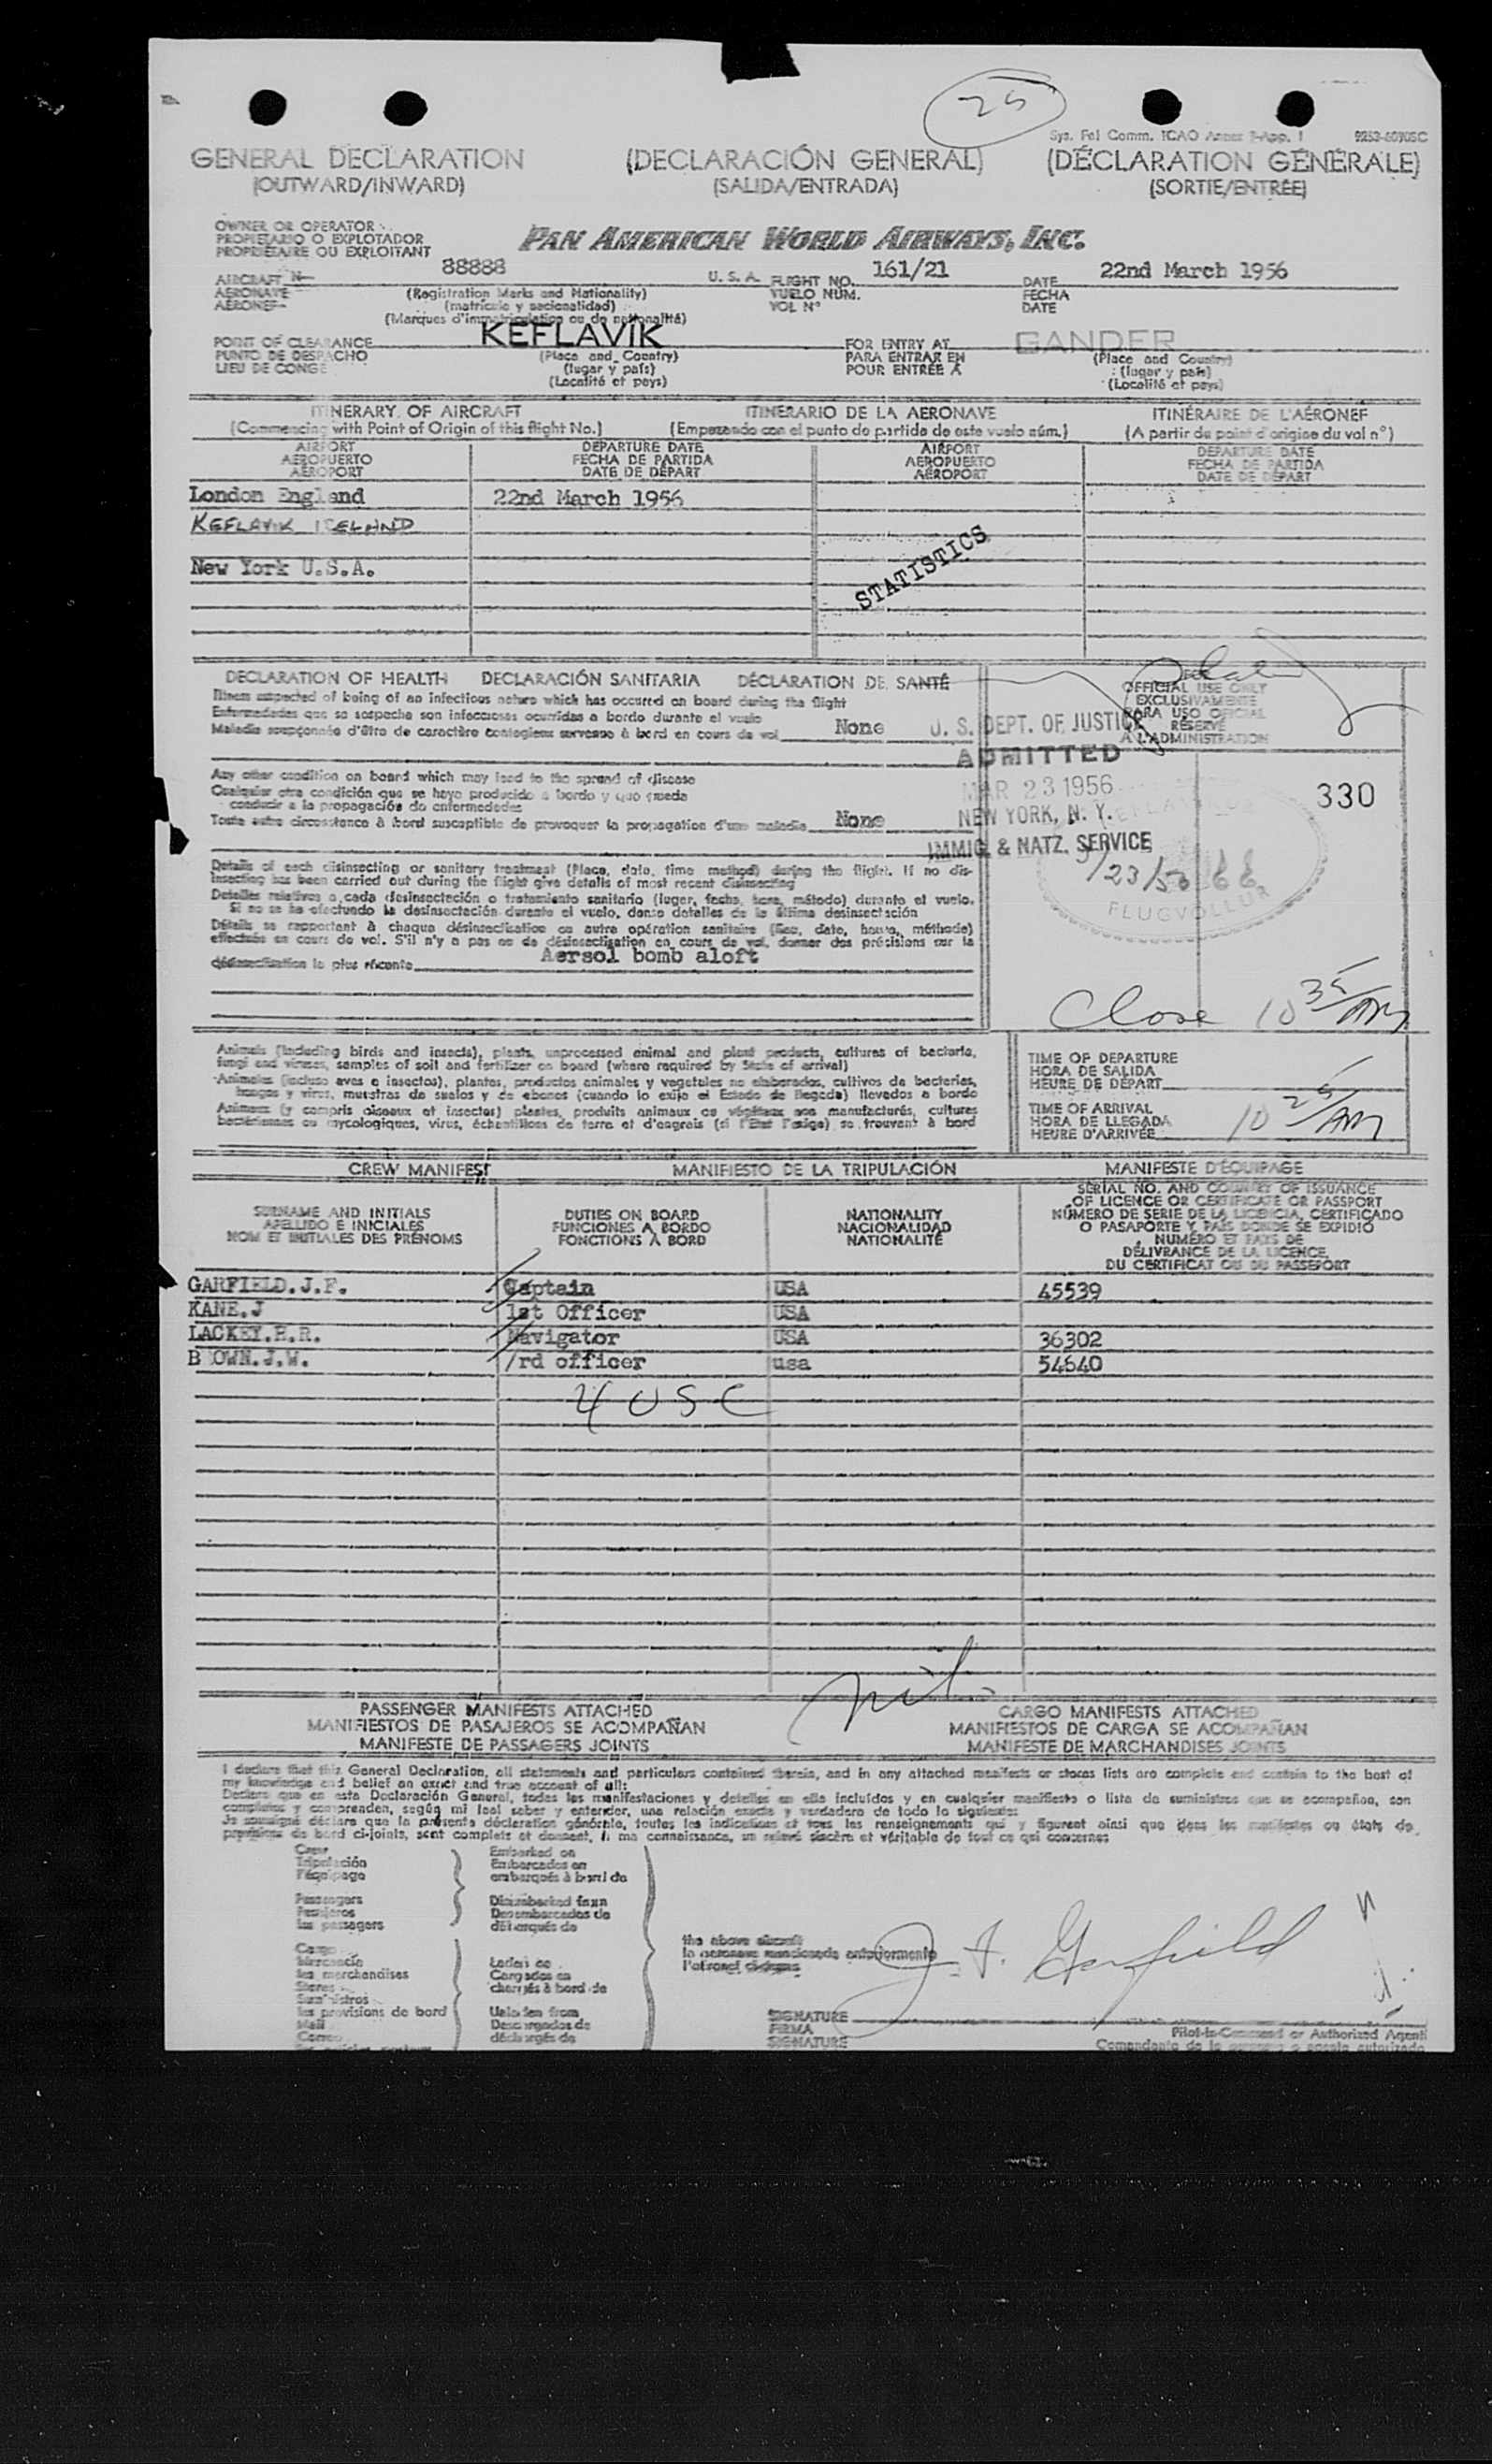 25
Sys. Fal Comm. ICAO Annex 9-App. 1
GENERAL DECLARATION (DECLARACIÓN GENERAL) (DÉCLARATION GÉNÉRALE)
(OUTWARD/INWARD) (SALIDA/ENTRADA) (SORTIE/ENTRÉE)
OWNER OR OPERATOR
PROPIETARIO O EXPLOTADOR
PROPRIÉTAIRE OU EXPLOITANT
PAN AMERICAN WORLD AIRWAYS, INC.
AIRCRAFT N 88888 U. S. A. FLIGHT NO. 161/21 DATE 22nd March 1956
AERONAVE (Registration Marks and Nationality) VUELO NÚM. FECHA
AÉRONEF (matrícula y nacionalidad) VOL N° DATE
(Marques d'immatriculation ou de nationalité)
POINT OF CLEARANCE KEFLAVIK FOR ENTRY AT GANDER
PUNTO DE DESPACHO (Place and Country) PARA ENTRAR EN (Place and Country)
LIEU DE CONGÉ (lugar y país) POUR ENTRÉE A (lugar y país)
(Localité et pays) (Localité et pays)
ITINERARY OF AIRCRAFT ITINERARIO DE LA AERONAVE ITINÉRAIRE DE L'AÉRONEF
(Commencing with Point of Origin of this flight No.) (Empezando con el punto de partida de este vuelo núm.) (A partir du point d'origine du vol n°)
AIRPORT DEPARTURE DATE AIRPORT DEPARTURE DATE
AEROPUERTO FECHA DE PARTIDA AEROPUERTO FECHA DE PARTIDA
AÉROPORT DATE DE DÉPART AÉROPORT DATE DE DÉPART
London England 22nd March 1956
KEFLAVIK ICELAND
New York U.S.A.
STATISTICS
DECLARATION OF HEALTH DECLARACIÓN SANITARIA DÉCLARATION DE SANTÉ
Illness suspected of being of an infectious nature which has occurred on board during the flight
Enfermedades que se sospecha son infecciosas ocurridas a bordo durante el vuelo
Maladie soupçonnée d'être de caractère contagieux survenue à bord en cours de vol None
OFFICIAL USE ONLY
EXCLUSIVAMENTE
PARA USO OFICIAL
RÉSERVÉ
A L'ADMINISTRATION
U. S. DEPT. OF JUSTICE
ADMITTED
MAR 23 1956
NEW YORK, N. Y.
IMMIG. & NATZ. SERVICE
330
3/23/56
FLUGVOLLUR
Any other condition on board which may lead to the spread of disease
Cualquier otra condición que se haya producido a bordo y que pueda
conducir a la propagación de enfermedades
Toute autre circonstance à bord susceptible de provoquer la propagation d'une maladie None
Details of each disinsecting or sanitary treatment (Place, date, time method) during the flight. If no dis-
insecting has been carried out during the flight give details of most recent disinsecting
Detalles relativos a cada desinsectación o tratamiento sanitario (lugar, fecha, hora, método) durante el vuelo.
Si no se ha efectuado la desinsectación durante el vuelo, dense detalles de la última desinsectación
Détails se rapportant à chaque désinsectisation ou autre opération sanitaire (lieu, date, heure, méthode)
effectuée en cours de vol. S'il n'y a pas eu de désinsectisation en cours de vol, donner des précisions sur la
désinsectisation la plus récente Aersol bomb aloft
Close 10 35/AM
Animals (including birds and insects), plants, unprocessed animal and plant products, cultures of bacteria,
fungi and viruses, samples of soil and fertilizer on board (where required by State of arrival)
Animales (incluso aves e insectos), plantas, productos animales y vegetales no elaborados, cultivos de bacterias,
hongos y virus, muestras de suelos y de abonos (cuando lo exija el Estado de llegada) llevados a bordo
Animaux (y compris oiseaux et insectes) plantes, produits animaux ou végétaux non manufacturés, cultures
bactériennes ou mycologiques, virus, échantillons de terre et d'engrais (si l'État l'exige) se trouvant à bord
TIME OF DEPARTURE
HORA DE SALIDA
HEURE DE DÉPART
TIME OF ARRIVAL
HORA DE LLEGADA
HEURE D'ARRIVÉE 10 25/AM
CREW MANIFEST MANIFIESTO DE LA TRIPULACIÓN MANIFESTE D'ÉQUIPAGE
SURNAME AND INITIALS
APELLIDO E INICIALES
NOM ET INITIALES DES PRÉNOMS
DUTIES ON BOARD
FUNCIONES A BORDO
FONCTIONS À BORD
NATIONALITY
NACIONALIDAD
NATIONALITÉ
SERIAL NO. AND COUNTRY OF ISSUANCE
OF LICENCE OR CERTIFICATE OR PASSPORT
NÚMERO DE SERIE DE LA LICENCIA, CERTIFICADO
O PASAPORTE Y PAÍS DONDE SE EXPIDIÓ
NUMÉRO ET PAYS DE
DÉLIVRANCE DE LA LICENCE,
DU CERTIFICAT OU DU PASSEPORT
GARFIELD.J.F. Captain USA 45539
KANE.J 1st Officer USA
LACKEY.R.R. Navigator USA 36302
B OWN.J.W. /rd officer usa 54640
4 USC
nil
PASSENGER MANIFESTS ATTACHED CARGO MANIFESTS ATTACHED
MANIFIESTOS DE PASAJEROS SE ACOMPAÑAN MANIFIESTOS DE CARGA SE ACOMPAÑAN
MANIFESTE DE PASSAGERS JOINTS MANIFESTE DE MARCHANDISES JOINTS
I declare that this General Declaration, all statements and particulars contained therein, and in any attached manifests or stores lists are complete and contain to the best of
my knowledge and belief an exact and true account of all:
Declaro que en esta Declaración General, todas las manifestaciones y detalles en ella incluidos y en cualquier manifiesto o lista de suministros que se acompañan, son
completos y comprenden, según mi leal saber y entender, una relación exacta y verdadera de todo lo siguiente:
Je soussigné déclare que la présente déclaration générale, toutes les indications et tous les renseignements qui y figurent ainsi que dans les manifestes ou états de
provisions de bord ci-joints, sont complets et donnent, à ma connaissance, un relevé sincère et véritable de tout ce qui concerne:
Crew Embarked on
Tripulación Embarcados en
l'équipage embarqués à bord de
Passengers Disembarked from
Pasajeros Desembarcados de
les passagers débarqués de
Cargo
Mercancía Laden on
les marchandises Cargados en
Stores chargés à bord de
Suministros
les provisions de bord Unladen from
Mail Descargados de
Correo déchargés de
the above aircraft
la aeronave mencionada anteriormente
l'aéronef ci-dessus
J. F. Garfield
SIGNATURE
FIRMA
SIGNATURE
Pilot-in-Command or Authorized Agent
Comandante de la aeronave o agente autorizado